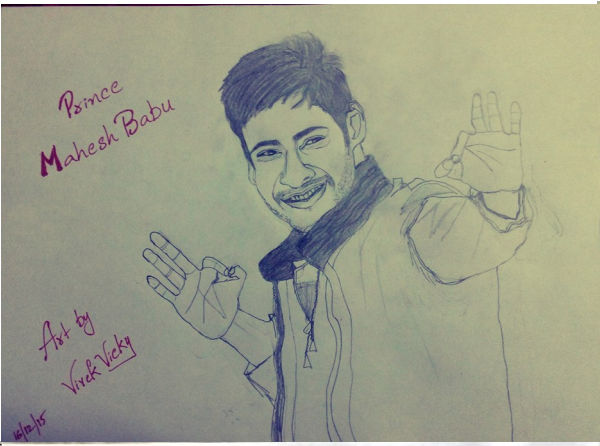 Prince
Mahesh Babu
Art by
Vivek Vicky
16/12/15